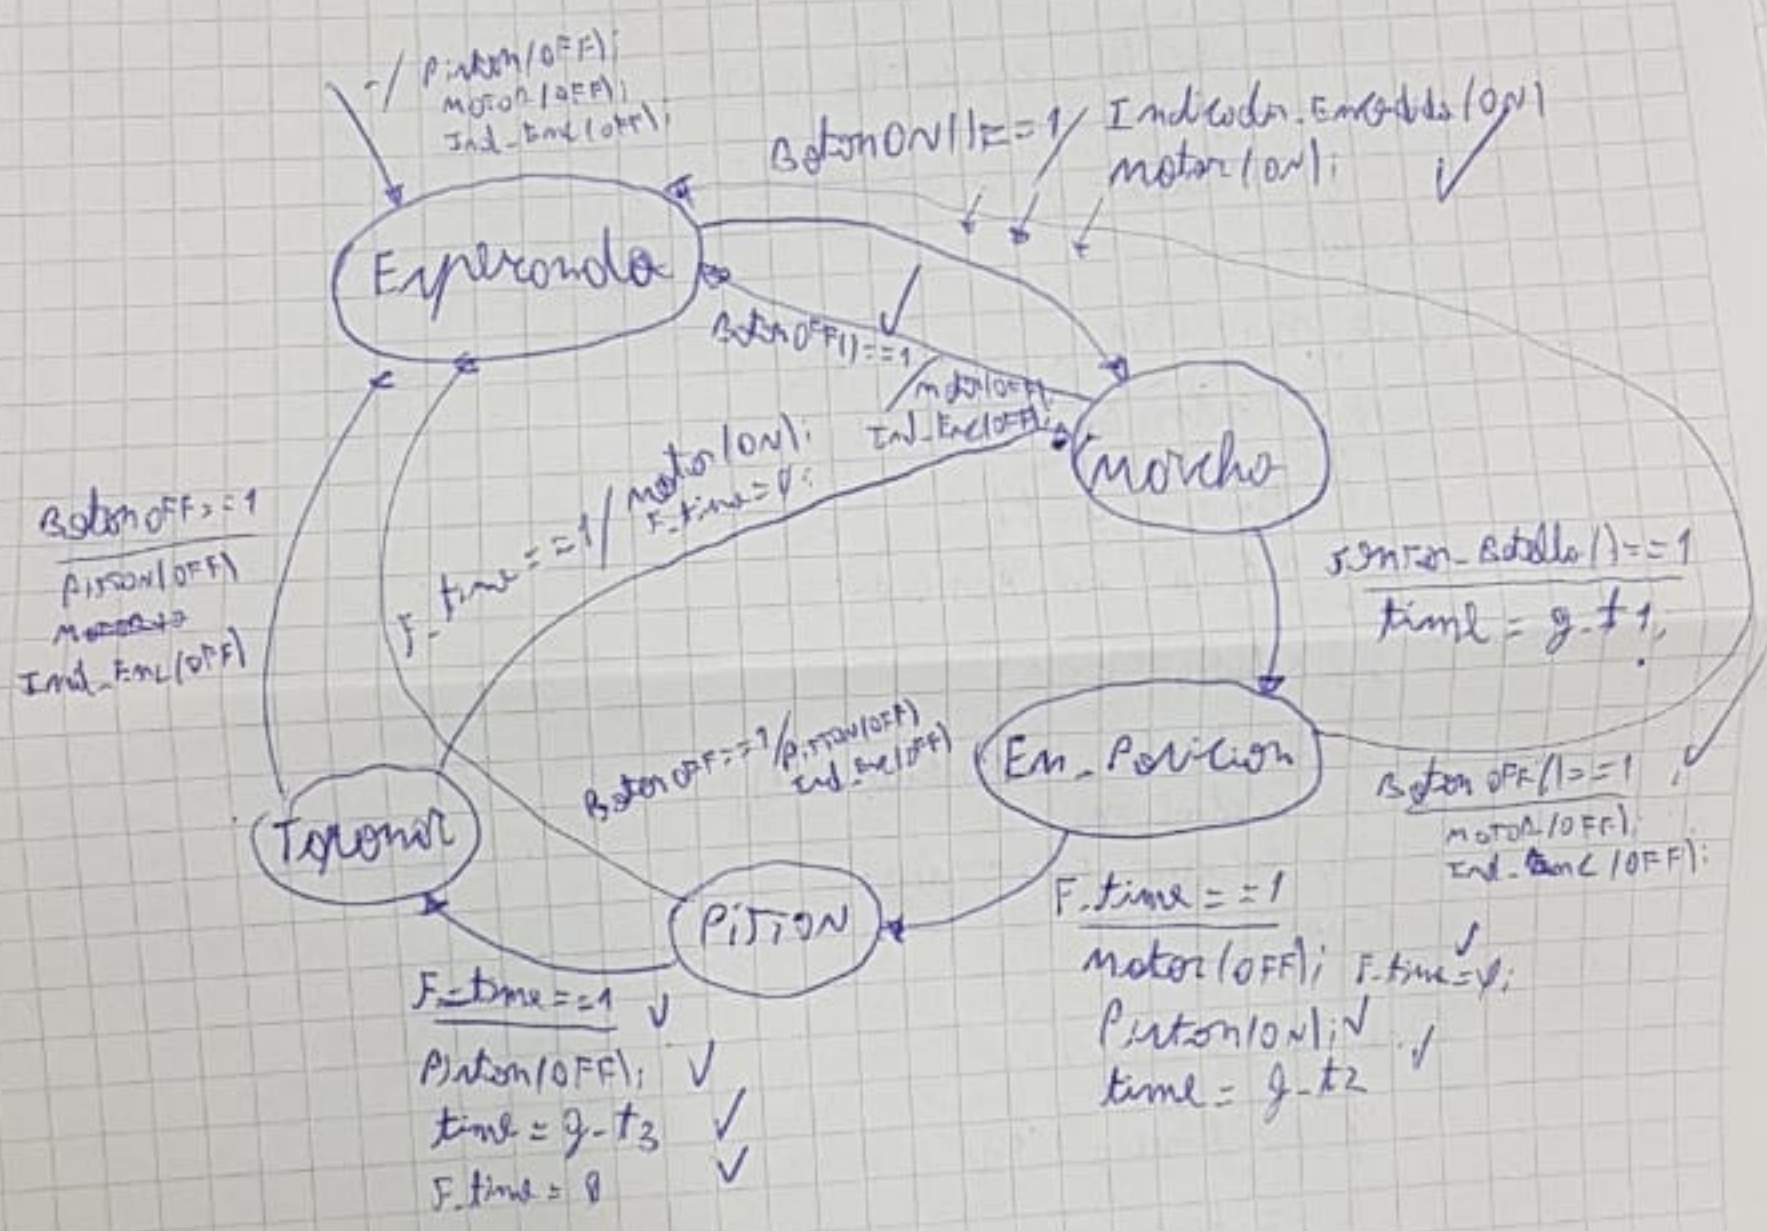 -/ Piston(OFF);
MOTOR(OFF);
Ind_Enc(OFF);
BotonON()==1/ Indicador_Encendido(ON)
motor(ON);
Esperando
BotonOFF()==1
/motor(OFF);
Ind_Enc(OFF);
Marcha
F_time==1/ Motor(ON);
F_time=0;
BotonOFF==1
PISTON(OFF)
Ind_Enc(OFF)
Sensor_Botella()==1
time = g_t1;
En_Posicion
BotonOFF==1/PISTON(OFF)
Ind_Enc(OFF)
BotonOFF()==1
MOTOR(OFF);
Ind_Enc(OFF);
Taponar
PISTON
F_time==1
Motor(OFF); F_time=0;
Piston(ON);
time = g_t2
F_time==1
Piston(OFF);
time = g_t3
F_time = 0